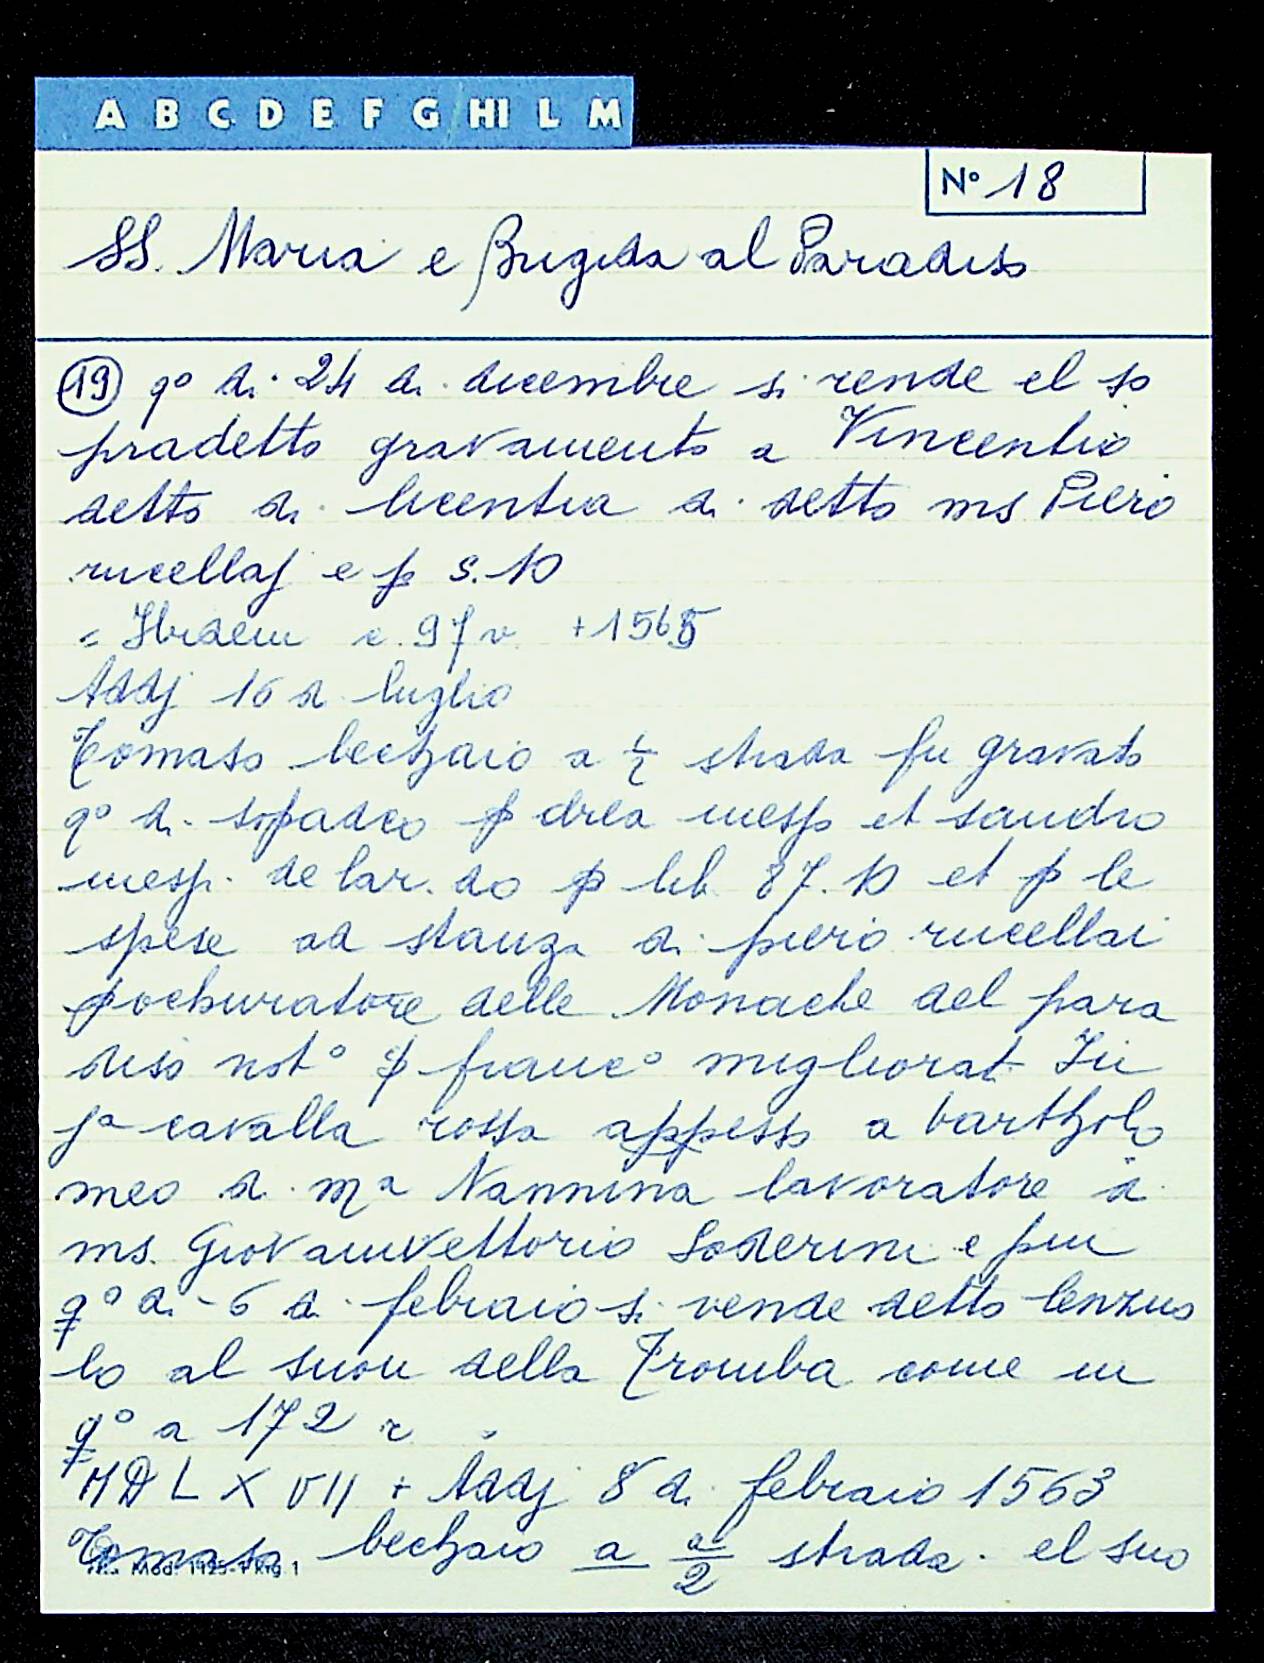 A B C D E F G HI L M
N° 18
SS. Maria e Brigida al Paradiso
19 q° di 24 di dicembre si rende el so
pradetto gravamento a Vincentio
detto di licentia di detto ms Piero
rucellaj e p s. 10
= Ibidem c. 97 v + 1565
Addj 16 di luglio
Tomaso bechaio a ½ strada fu gravato
q° di sopadeo p drea mess et sandro
mess. de lar. do p lib 87. 10 et p le
spese ad stanza di piero rucellai
pochuratore delle Monache del para
diso not° p franc° migliorat In
p^a cavalla rossa appesso a barthol
meo di m^a Nannina lavoratore a
ms. Giovanvettorio Soderini e piu
q° di - 6 di febraio si vende detto lenzuo
lo al suon della Tromba come in
q° a 172 r
MDLXVII + Addj 8 di febraio 1563
Tomaso bechaio a a/2 strada. el suo
Mod. 1125-1 Rig. 1